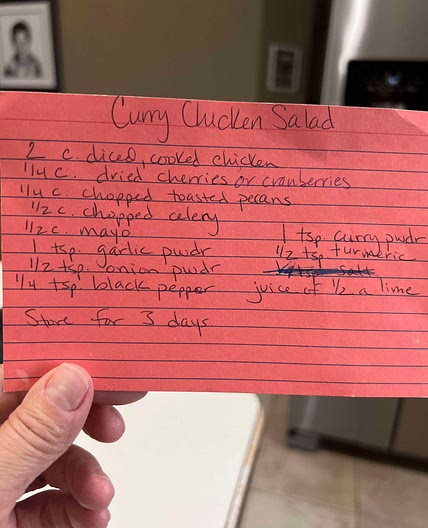 Curry Chicken Salad
2 c. diced, cooked chicken
1/4 c. dried cherries or cranberries
1/4 c. chopped toasted pecans
1/2 c. chopped celery
1/2 c. mayo
1 tsp. garlic pwdr
1/2 tsp. onion pwdr
1/4 tsp. black pepper
1 tsp. curry pwdr
1/2 tsp turmeric
1/4 tsp salt
juice of 1/2 a lime
Store for 3 days